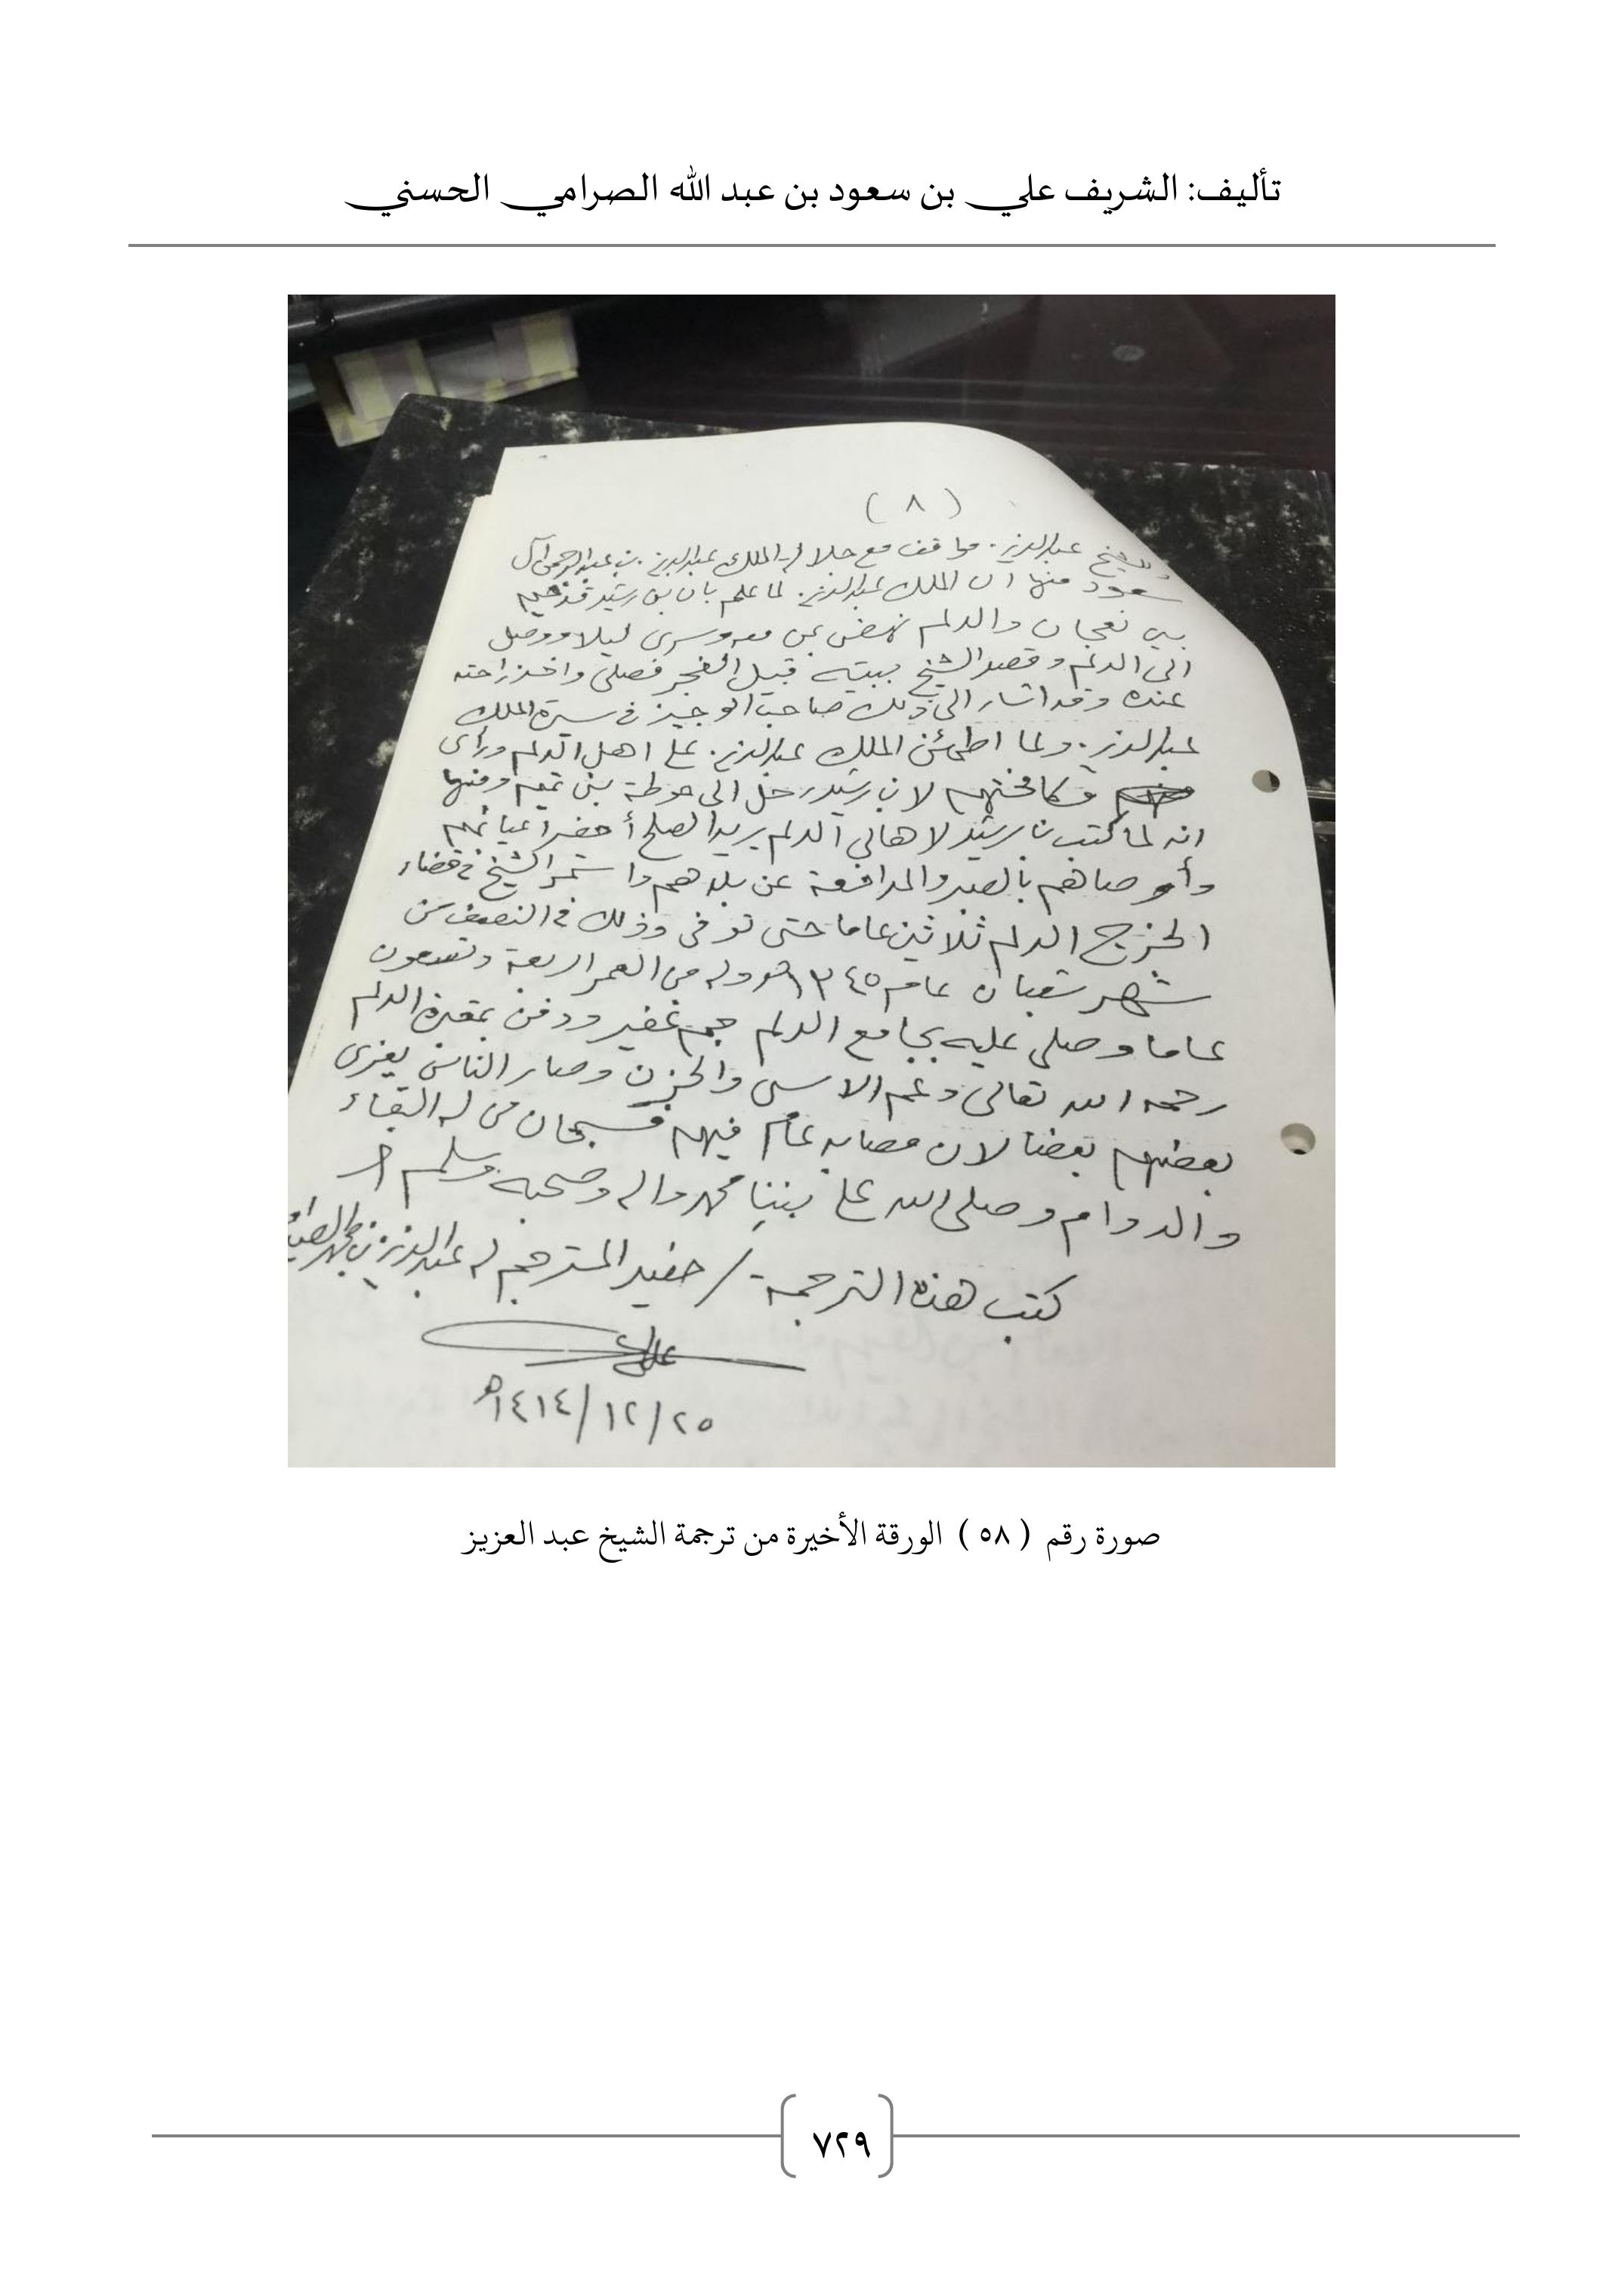 تأليف: الشريف علي بن سعود بن عبد الله الصرامي الحسني
( ٨ )
وللشيخ عبدالعزيز مواقف مع جلالة الملك عبدالعزيز بن عبدالرحمن آل
سعود منها ان الملك عبدالعزيز لما علم بان بن رشيد قد خيم
بين نعجان والدلم نهض بمن معه وسرى ليلا ووصل
الى الدلم وقصد الشيخ ببيته قبيل الفجر فصلى واخذ راحته
عنده وقد اشار الى ذلك صاحب الوجيز في سيرة الملك
عبدالعزيز. ولما اطمئن الملك عبدالعزيز على اهل الدلم ورأى
مكافحتهم لابن رشيد رحل الى حوطة بني تميم ومنها
انه لما كتب بن رشيد لاهالي الدلم يريد الصلح أحضر اعيانهم
وأوصاهم بالصبر والمدافعة عن بلدهم واستمر الشيخ في قضاء
الخرج الدلم ثلاثين عاما حتى توفى وذلك في النصف من
شهر شعبان عام ١٣٤٥هـ وله من العمر اربعة وتسعون
عاما وصلى عليه بجامع الدلم جم غفير ودفن بمقبرة الدلم
رحمه الله تعالى وعم الاسى والحزن وصار الناس يعزى
بعضهم بعضا لان مصابه عام فيهم فسبحان من له البقاء
والدوام وصلى الله على نبينا محمد واله وصحبه وسلم
كتب هذه الترجمة / حفيد المترجم له عبدالعزيز بن محمد
٢٥/١٢/١٤١٤هـ
صورة رقم ( ٥٨ ) الورقة الأخيرة من ترجمة الشيخ عبد العزيز
٧٢٩